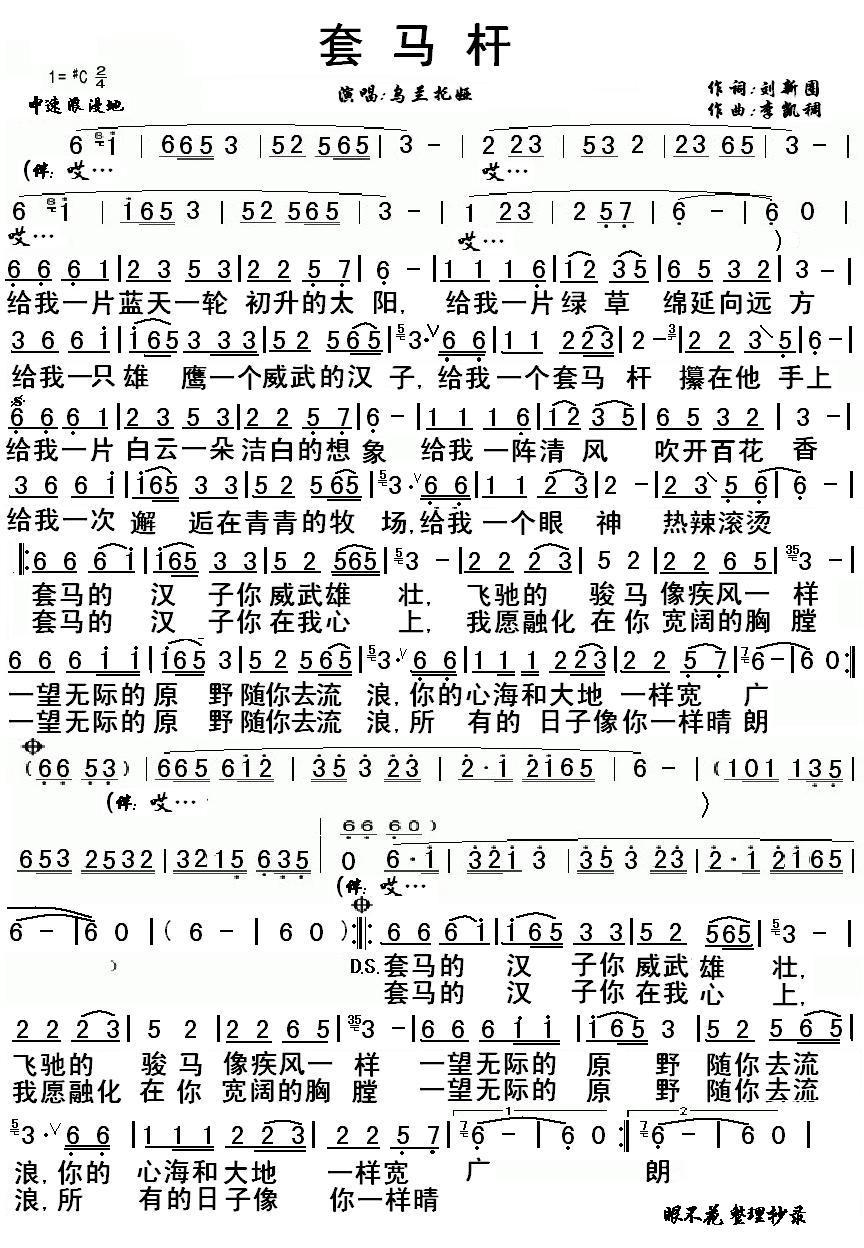 套马杆
1=#C 2/4
中速 浪漫地
演唱:乌兰托娅
作词:刘新圈
作曲:李凯稠
6 6 1 | 6 6 5 3 | 5 2 5 6 5 | 3 - | 2 2 3 | 5 3 2 | 2 3 6 5 | 3 - |
(伴: 哎… 哎…
6 6 1 | 1 6 5 3 | 5 2 5 6 5 | 3 - | 1 2 3 | 2 5 7 | 6 - | 6 0 |
哎… 哎… )
6 6 6 1 | 2 3 5 3 | 2 2 5 7 | 6 - | 1 1 1 6 | 1 2 3 5 | 6 5 3 2 | 3 - |
给我一片蓝天一轮 初升的太 阳, 给我一片绿 草 绵延向远 方
3 6 6 1 | 1 6 5 3 3 3 | 5 2 5 6 5 | 5 3· V 6 6 | 1 1 2 2 3 | 2 - | 2 3 5 | 6 - |
给我一只雄 鹰一个威武的汉 子,给我一个套马 杆 攥在他 手上
6 6 6 1 | 2 3 5 3 | 2 2 5 7 | 6 - | 1 1 1 6 | 1 2 3 5 | 6 5 3 2 | 3 - |
给我一片 白云一朵 洁白的想 象 给我 一阵清 风 吹开百花 香
3 6 6 1 | 1 6 5 3 3 | 5 2 5 6 5 | 5 3· V 6 6 | 1 1 2 3 | 2 - | 2 3 5 6 | 6 - |
给我一次 邂 逅在青青的牧 场,给我 一个眼 神 热辣滚烫
‖: 6 6 6 1 | 1 6 5 3 3 | 5 2 5 6 5 | 5 3 - | 2 2 2 3 | 5 2 | 2 2 6 5 | 35 3 - |
套马的 汉 子你 威武雄 壮, 飞驰的 骏马 像疾风一 样
套马的 汉 子你 在我心 上, 我愿融化 在你 宽阔的胸 膛
6 6 6 1 1 | 1 6 5 3 | 5 2 5 6 5 | 5 3· V 6 6 | 1 1 1 2 2 3 | 2 2 5 7 | 7 6 - | 6 0 :‖
一望无际的 原 野 随你去流 浪,你的心海和大地 一样宽 广
一望无际的 原 野 随你去流 浪,所 有的 日子像你一样晴 朗
( 6 6 5 3 ) | 6 6 5 6 1 2 | 3 5 3 2 3 | 2· 1 2 1 6 5 | 6 - | ( 1 0 1 1 3 5 |
(伴: 哎… )
6 6 6 0 )
6 5 3 2 5 3 2 | 3 2 1 5 6 3 5 | 0 6· 1 | 3 2 1 3 | 3 5 3 2 3 | 2· 1 2 1 6 5 |
(伴: 哎…
6 - | 6 0 | ( 6 - | 6 0 ) :‖: 6 6 6 1 | 1 6 5 3 3 | 5 2 5 6 5 | 5 3 - |
) D.S. 套马的 汉 子你 威武 雄 壮,
套马的 汉 子你 在我 心 上,
2 2 2 3 | 5 2 | 2 2 6 5 | 35 3 - | 6 6 6 1 1 | 1 6 5 3 | 5 2 5 6 5 |
飞驰的 骏马 像疾风一 样 一望无际的 原 野 随你去流
我愿融化 在你 宽阔的胸 膛 一望无际的 原 野 随你去流
5 3· V 6 6 | 1 1 1 2 2 3 | 2 2 5 7 | 1 7 6 - | 6 0 :‖ 2 7 6 - | 6 0 ‖
浪,你的 心海和大地 一样宽 广 朗
浪,所 有的日子像 你一样晴
眼不花 整理抄录